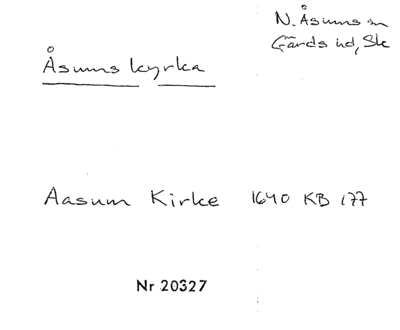 N. Åsums sn
Gärds hd, Sk
Åsums kyrka
Aasum Kirke 1640 KB 177
Nr 20327